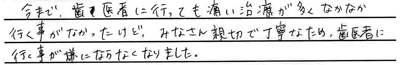 今まで、歯医者に行っても痛い治療が多くなかなか
行く事がなかったけど、みなさん親切で丁寧なため、歯医者に
行く事が嫌にならなくなりました。